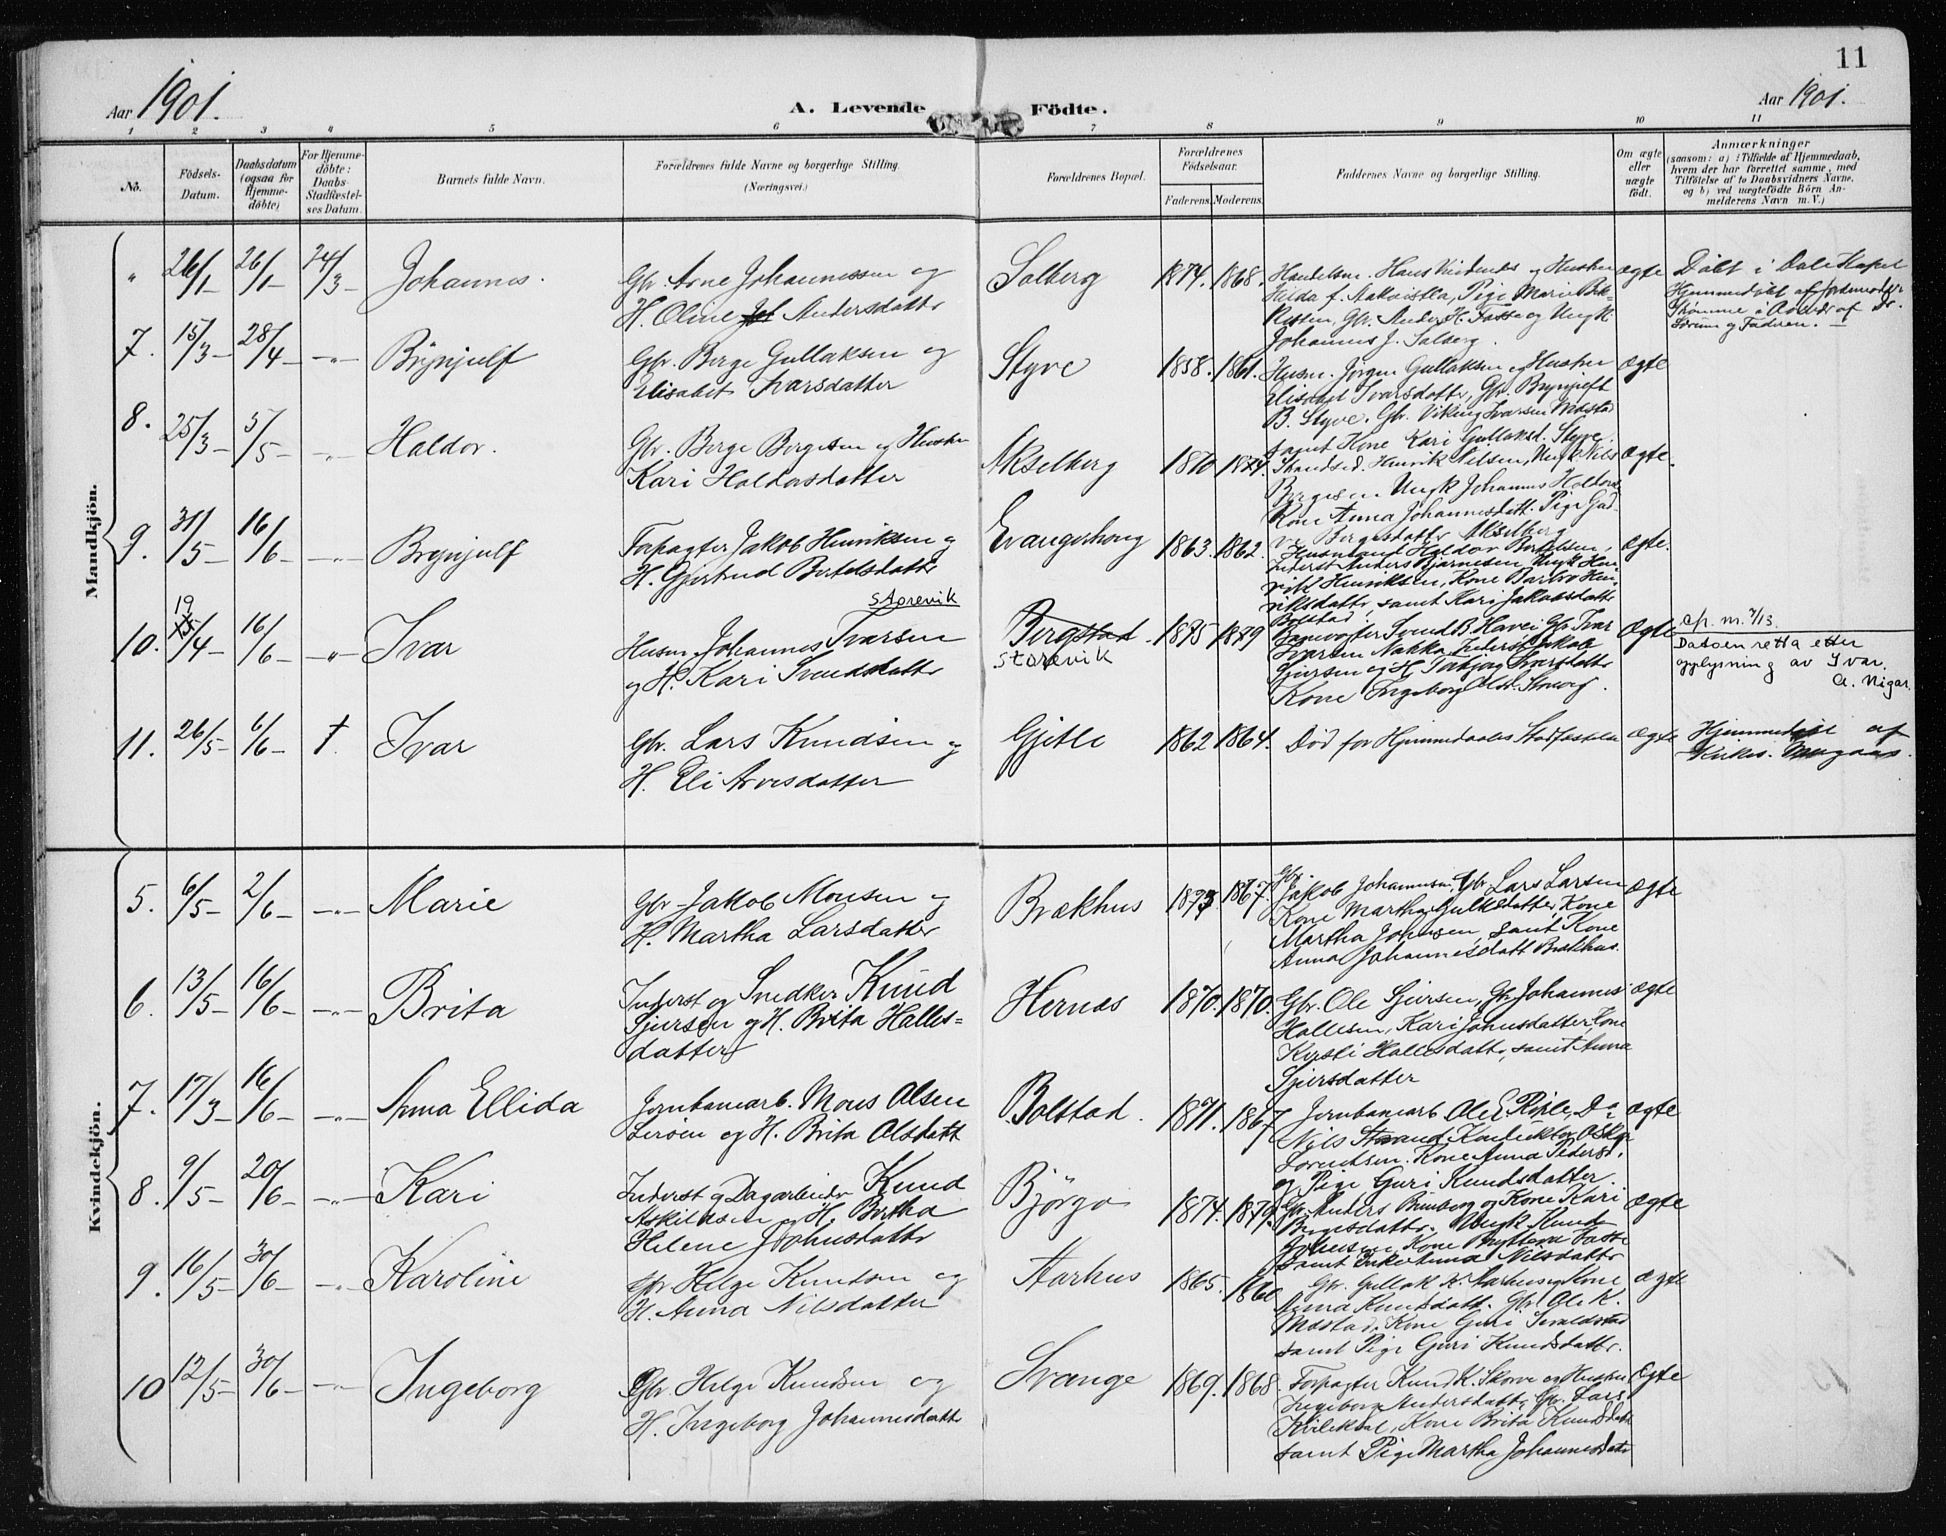 11
Aar 1901.
A. Levende Födte.
Aar 1901.
1 2 3 4 5 6 7 8 9 10 11
No.
Födsels-Datum.
Daabsdatum (ogsaa for Hjemmedöbte)
For Hjemmedöbte: Daabs-Stadfæstelses Datum.
Barnets fulde Navn.
Forældrenes fulde Navne og borgerlige Stilling.
(Næringsvei.)
Forældrenes Bopæl.
Forældrenes Födselsaar.
Faderens. Moderens.
Faddernes Navne og borgerlige Stilling.
Om ægte eller uægte födt.
Anmærkninger
(saasom: a) i Tilfælde af Hjemmedaab,
hvem der har forrettet samme, med
Tilföielse af to Daabsvidners Navne,
og b) ved uægtefödte Börn An-
melderens Navn m. V.)
Mandkjön.
" 26/1 26/1 24/3 Johannes.
Gbr. Arne Johannessen og
H. Oline Andersdatter
Solberg 1874. 1868.
Johannes J. Solberg.
ægte
Döbt i Dale Kapel
7. 15/3 28/4 Brynjulf
Gbr. Berge Gullaksen og
Elisabet Ivarsdatter
Styve 1858. 1861.
Husm. Jørgen Gullaksen og Hustru
Elisabet Ivarsdatter, Gbr. Brynjulf
B. Styve, Gbr. Viking Ivarsen Mæstad
samt Kone Kari Gullaksd. Styve.
ægte
8. 25/3 5/5 Haldor.
Gbr. Berge Bergesen og Hustru
Kari Haldorsdatter
Akselberg 1874.
Strandsid. Henrik Nilsen, Ungk. Nils
Bergesen Ungk Johannes Haldors
Kone Anna Johannesdatt. Pige Gud-
ve Bergesdatter Akselberg
ægte.
9. 31/5 16/6 Brynjulf
Forpagter Jakob Henriksen og
H. Gjertrud Bertelsdatter
Evangerhaug 1863. 1862.
Husmand Haldor Bertelsen,
Inderst Anders Bjarnesen, Ungk Hen-
rik Henriksen, Kone Barbro Hen-
riksdatter, samt Kari Jakobsdatter
Bolstad.
ægte.
10. 19/4 16/6 Ivar
storevik
Husm. Johannes Ivarsen
og H. Kari Svendsdatter
Bergstad
storevik
1875 1879
Banevogter Svend B. Havei, Gbr. Ivar
Ivarsen Nakka, Inderst Jakob
Sjursen og H Torbjørg Ivarsdatter
Kone Ingeborg
ægte
Datoen retta etter
opplysning av Ivar.
A. Nigar.
11. 26/5 6/6 †. Ivar
Gbr. Lars Knudsen og
H. Eli Arvesdatter
Gjitle 1862 1864.
Död for Hjemmedaabs Stadfæstelse
ægte
Hjemmedöbt af
Kvindekjön.
5. 6/5 2/6 Marie
Gbr. Jakob Monsen og
H. Martha Larsdatter
Brækhus 1873 1867.
Gbr.
Jakob Johannesen, Gbr Lars Larsen
Kone Martha Gulleksdatter, Kone
Martha Johnsen, samt Kone
Anna Johannesdatt Brækhus.
ægte
6. 13/5 16/6 Brita
Inderst og Snedker Knud
Sjursen og H. Brita Halles-
datter
Hernæs 1870. 1870.
Gbr. Ole Sjursen, Gbr Johannes
Hallesen, Kari Johnsdatter, Kone
Kirsti Hallesdatter, samt Anna
Sjursdatter
ægte
7. 17/3 16/6 Anna Ellida
Jernbanearb. Mons Olsen
Lerøen og H. Brita Olsdatt
Bolstad. 1871. 1867
Jernbanearb Ole E Riple, Do
Nils Strand Konduktør Oskar
Lorentsen. Kone Anna Pederst.
og Pige Guri Knudsdatter.
ægte
8. 9/5 20/6 Kari
Inderst og Dagarbeider Knud
Askildsen og H. Bertha
Helene Johnsdatter
Bjørgo 1874. 1879.
Gbr. Anders Brunborg og Kone Kari
Bergesdatter. Ungk Knud
Johnsen, Kone Fosse
samt Nilsdatter
ægte
9. 16/5 30/6 Karoline
Gbr Helge Knudsen og
H. Anna Nilsdatter
Aarhus 1865. 1860
Gbr. Gullak K. Aarhus og Kone
Anna Knutsdatt. Gbr Ole K.
Mæstad, Kone Guri
samt Pige Guri Knudsdatter.
ægte
10 12/5 30/6 Ingeborg
Gbr Helge Knudsen og
H. Ingeborg Johannesdatter
Svange 1869. 1868.
Forpagter Knud K. Skorve og Hustru
Ingeborg Andersdatter, Gbr. Lars
Kvilekval, Kone Brita Knudsdatt
samt Pige Martha Johannesdatr
ægte